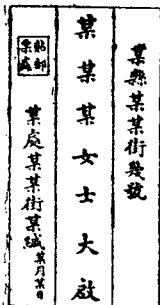 某縣某某街幾號
某某某女士大啟
貼郵
票處
某處某某街某緘
某月某日